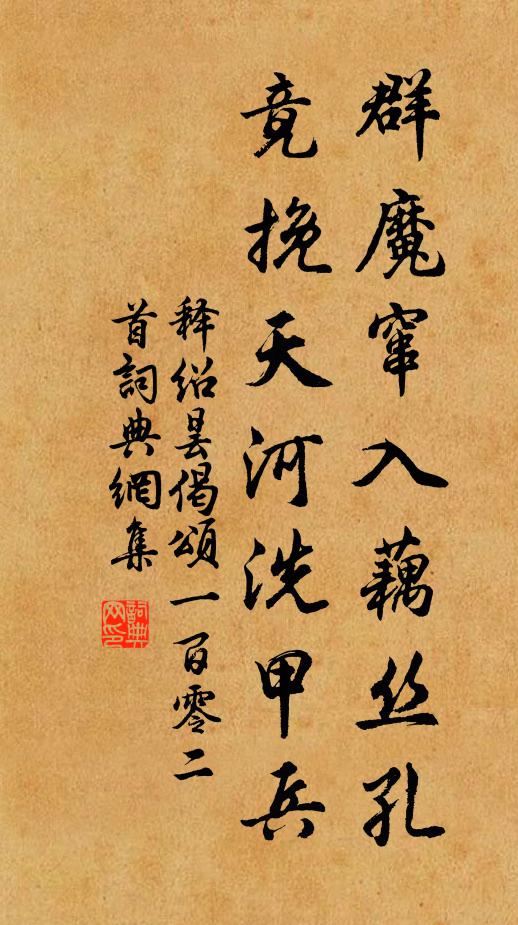 群魔窜入藕丝孔
竟挽天河洗甲兵
释绍昙偈颂一百零二
首詞典網集
詞典网印